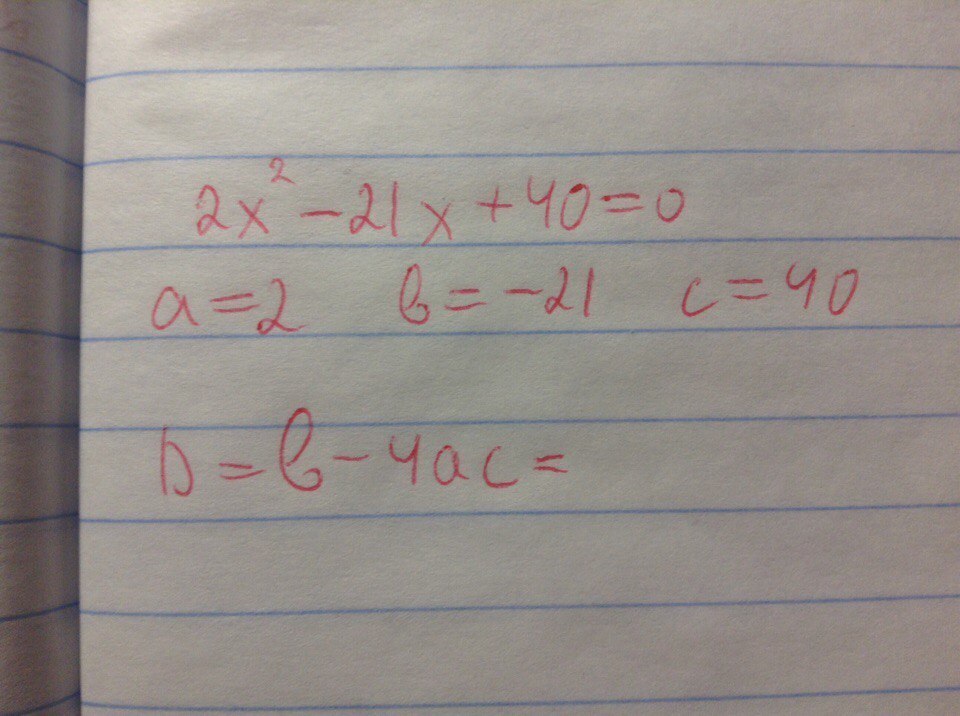 2x² -21x +40=0
a=2 b=-21 c=40
D=b-4ac=